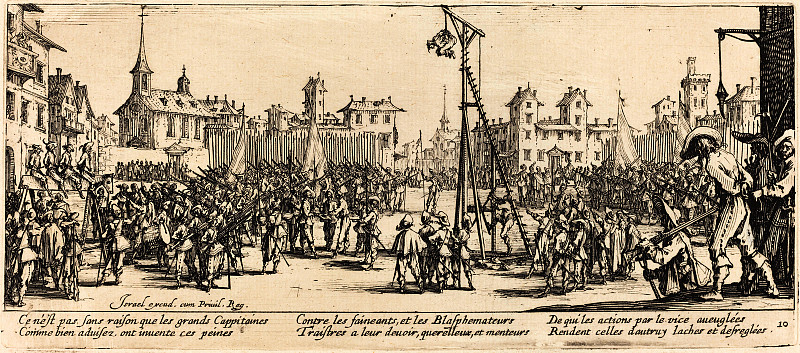 Israel excud. cum Privil. Reg.
Ce n'est pas sans raison que les grands Cappitaines
Comme bien aduisez, ont inuente ces peines
Contre les faineants, et les Blasphemateurs
Traistres a leur deuoir, querelleux, et menteurs
De qui les actions par le vice aueuglées
Rendent celles d'autruy laches et desreglées.
10